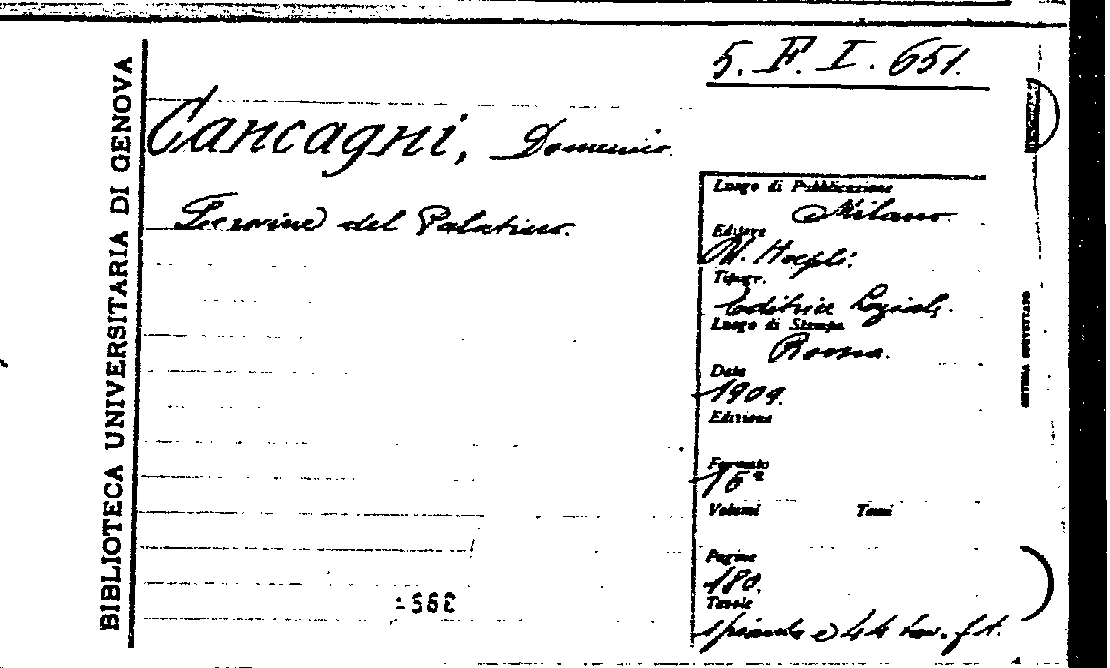 5. F. I. 651.
BIBLIOTECA UNIVERSITARIA DI GENOVA
Cancagni, Domenico.
del Palatino.
Luogo di Pubblicazione
Milano.
Editore
Hoepli.
Tipogr.
Editrice
Luogo di Stampa
Roma.
Data
1909.
Edizione
Formato
16°
Volumi Tomi
Pagine
180.
Tavole
1 pianta e 44 tav. f. t.